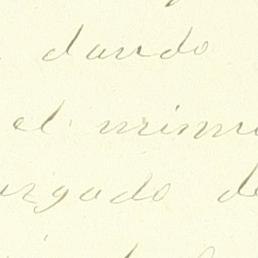 dando
el mismo
uzgado de